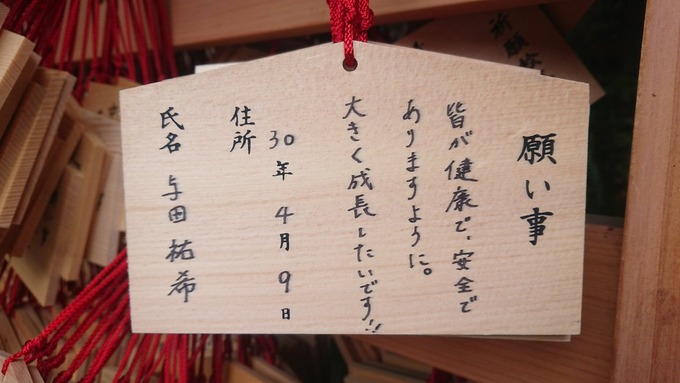 願い事
皆が健康で、安全で
ありますように。
大きく成長したいです!!
30年 4月 9日
住所
氏名 与田祐希
祈願